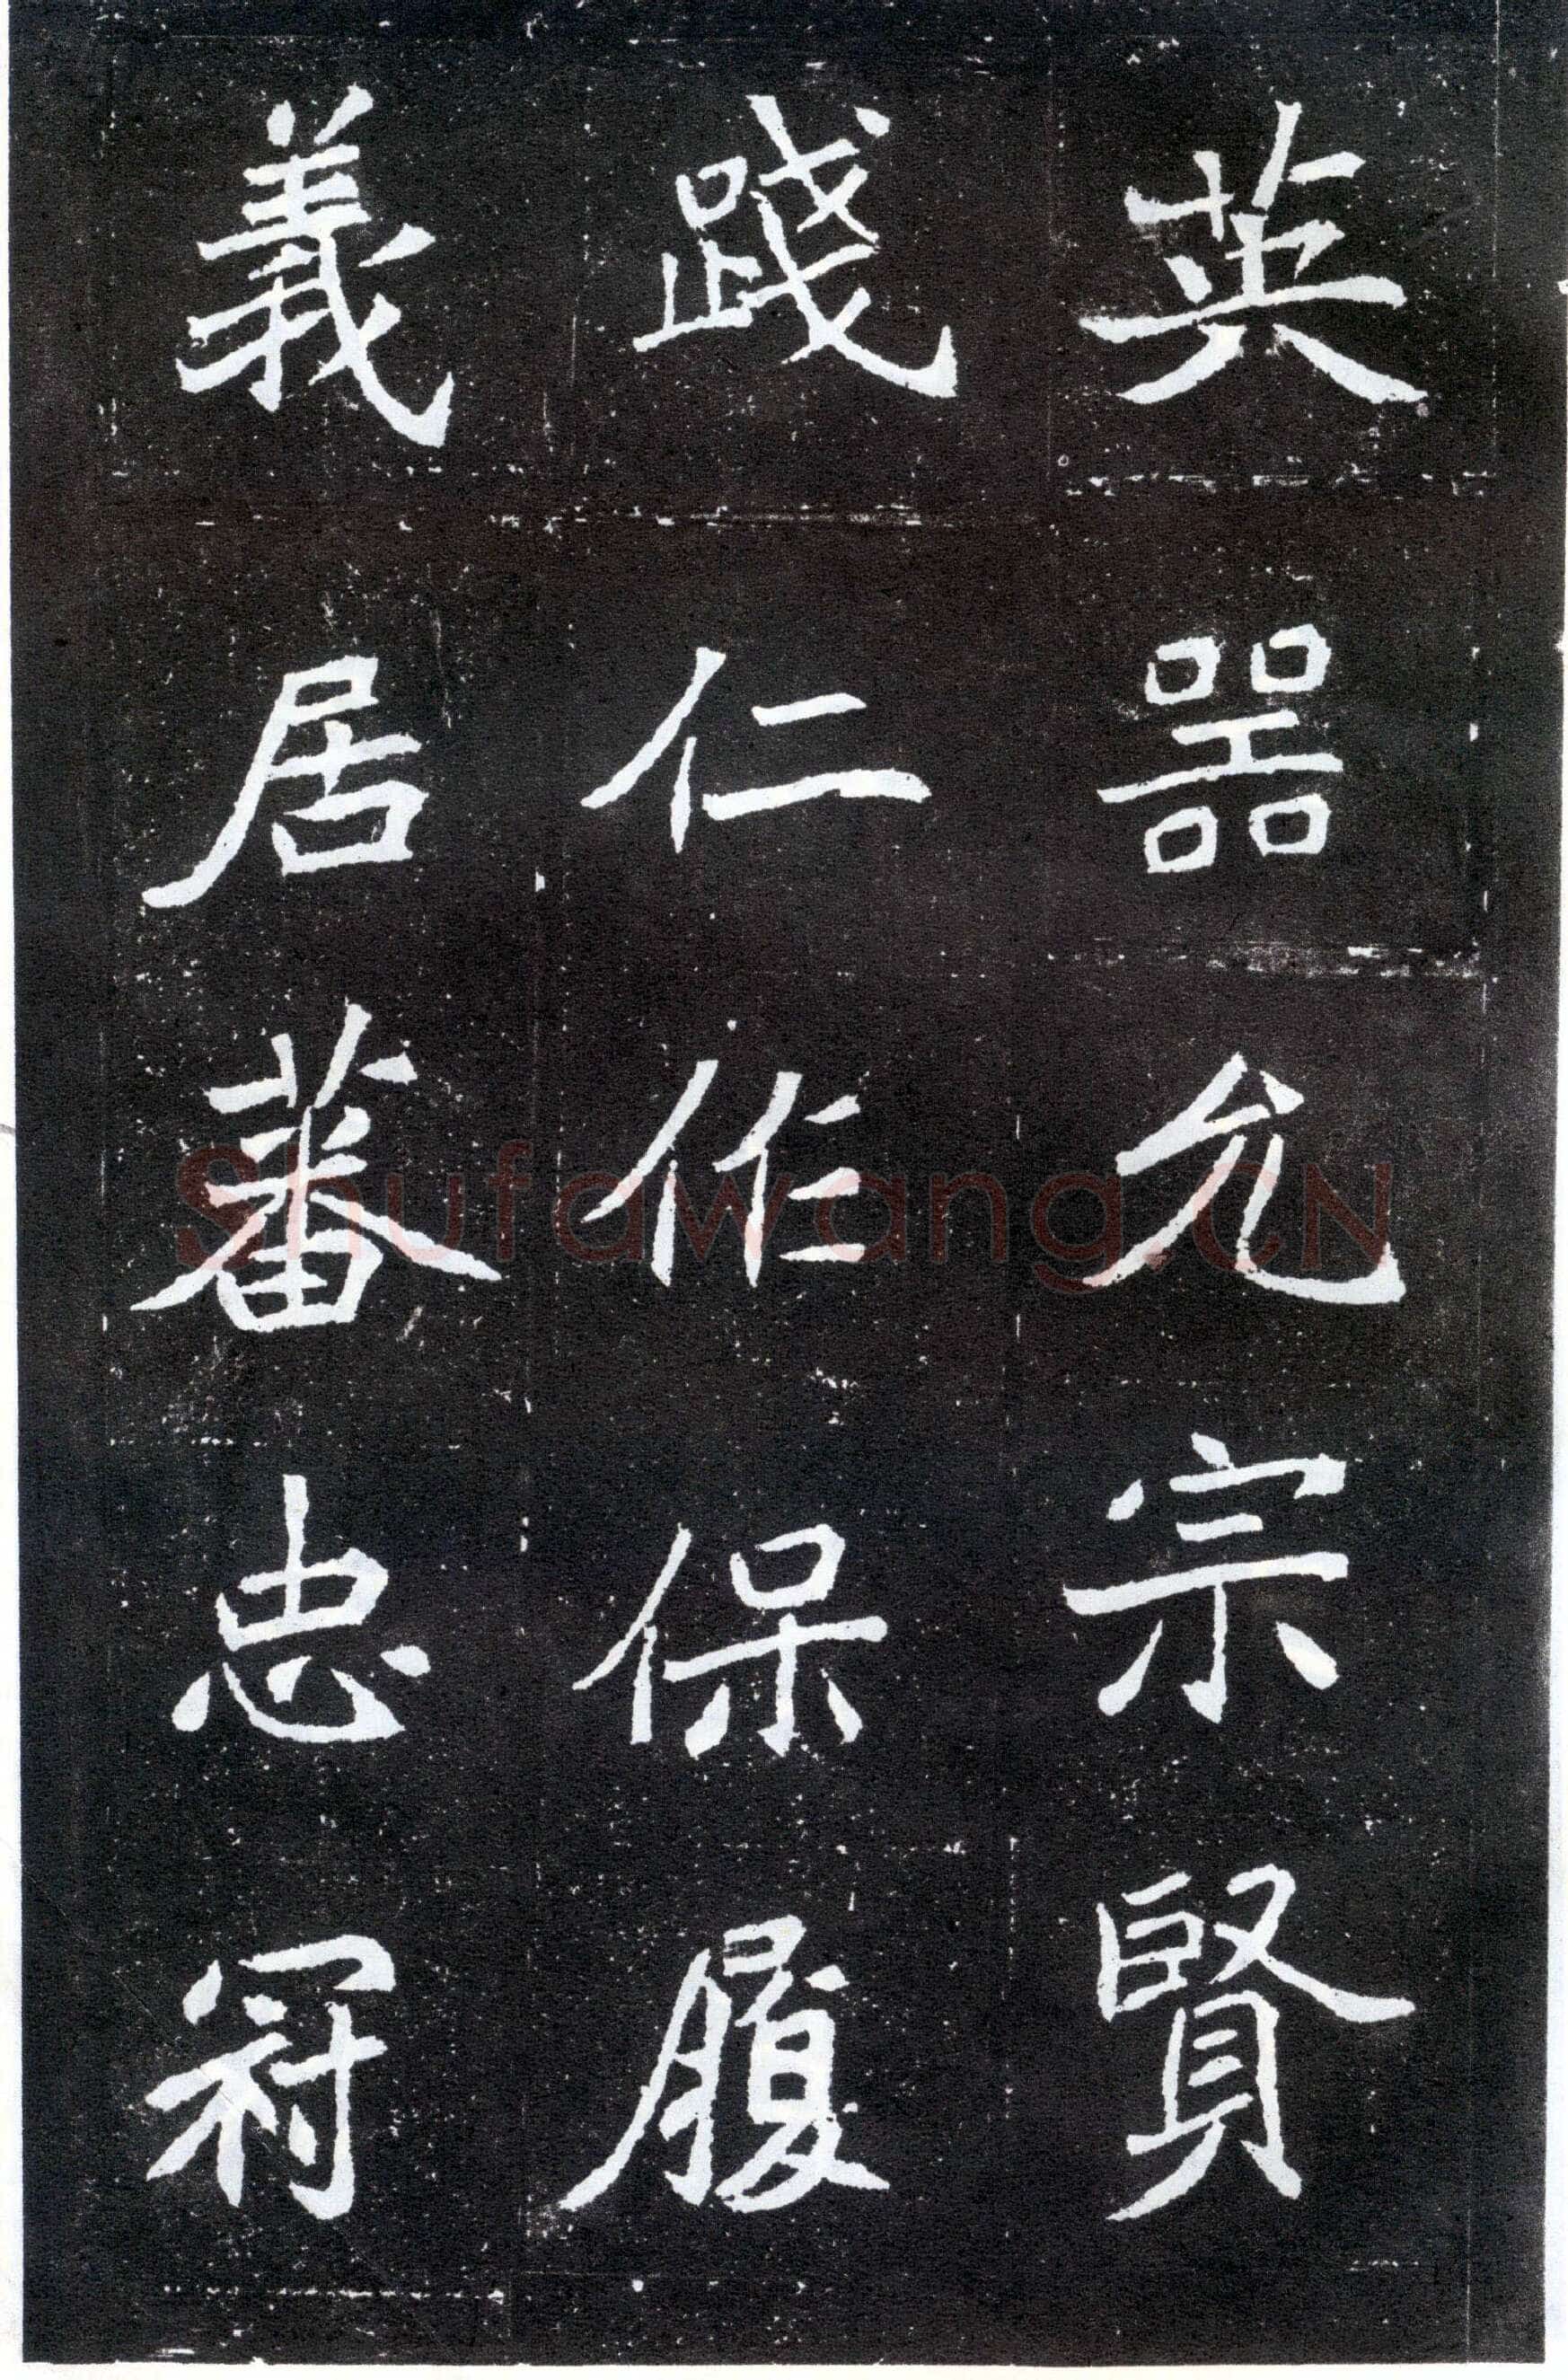 英噐允宗賢
踐仁作保履
義居蕃忠冠
Shufawang.CN